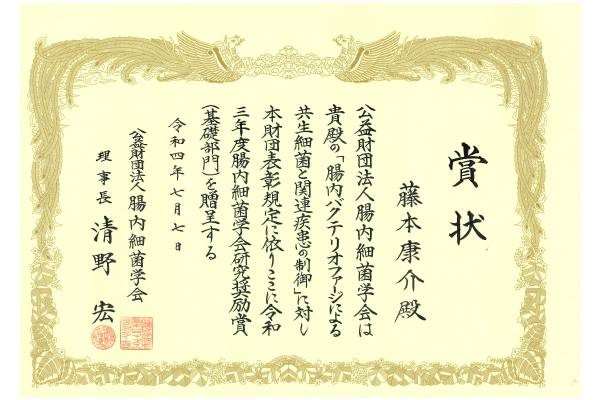 賞状
藤本康介殿
公益財団法人腸内細菌学会は
貴殿の「腸内バクテリオファージによる
共生細菌と関連疾患の制御」に対し
本財団表彰規定に依りここに令和
三年度腸内細菌学会研究奨励賞
(基礎部門)を贈呈する
令和四年七月七日
公益財団法人腸内細菌学会
理事長 清野 宏